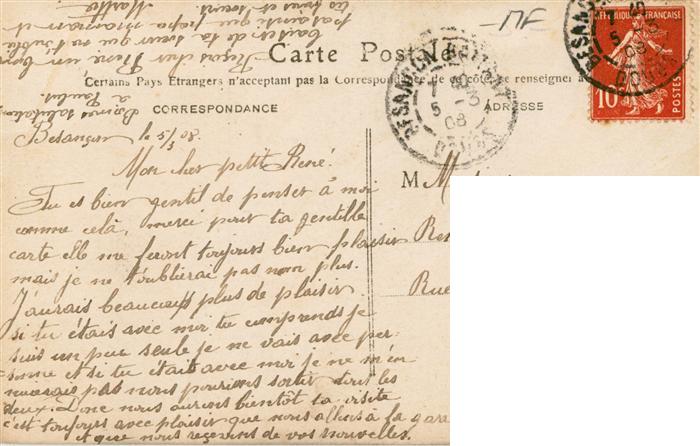 Carte Postale
Certains Pays Etrangers n'acceptant pas la Correspondance de ce côté se renseigner à
CORRESPONDANCE
ADRESSE
RÉPUBLIQUE FRANÇAISE
10
BESANÇON
DOUBS
5 -3
08
MF
Besançon le 5/3 08.
Mon cher petit René.
Tu es bien gentil de penser à moi
comme celà, merci pour ta gentille
carte elle me feront toujours bien plaisir
mais je ne t'oublierai pas non plus.
J'aurais beaucoup plus de plaisir
si tu étais avec moi tu comprends je
suis un peu seule je ne vais avec per-
sonne et si tu était avec moi je ne m'en
nuierais pas nous pourions sortir tous les
deux. Donc nous aurons bientôt ta visite
c'est toujours avec plaisir que nous allons à la gare
et que nous reçevons de vos nouvelles.
Reçois cher Pierre un bon
baiser de ta sœur qui ne t'oublie
pas ainsi que papa maman et
M
Ren
Rue